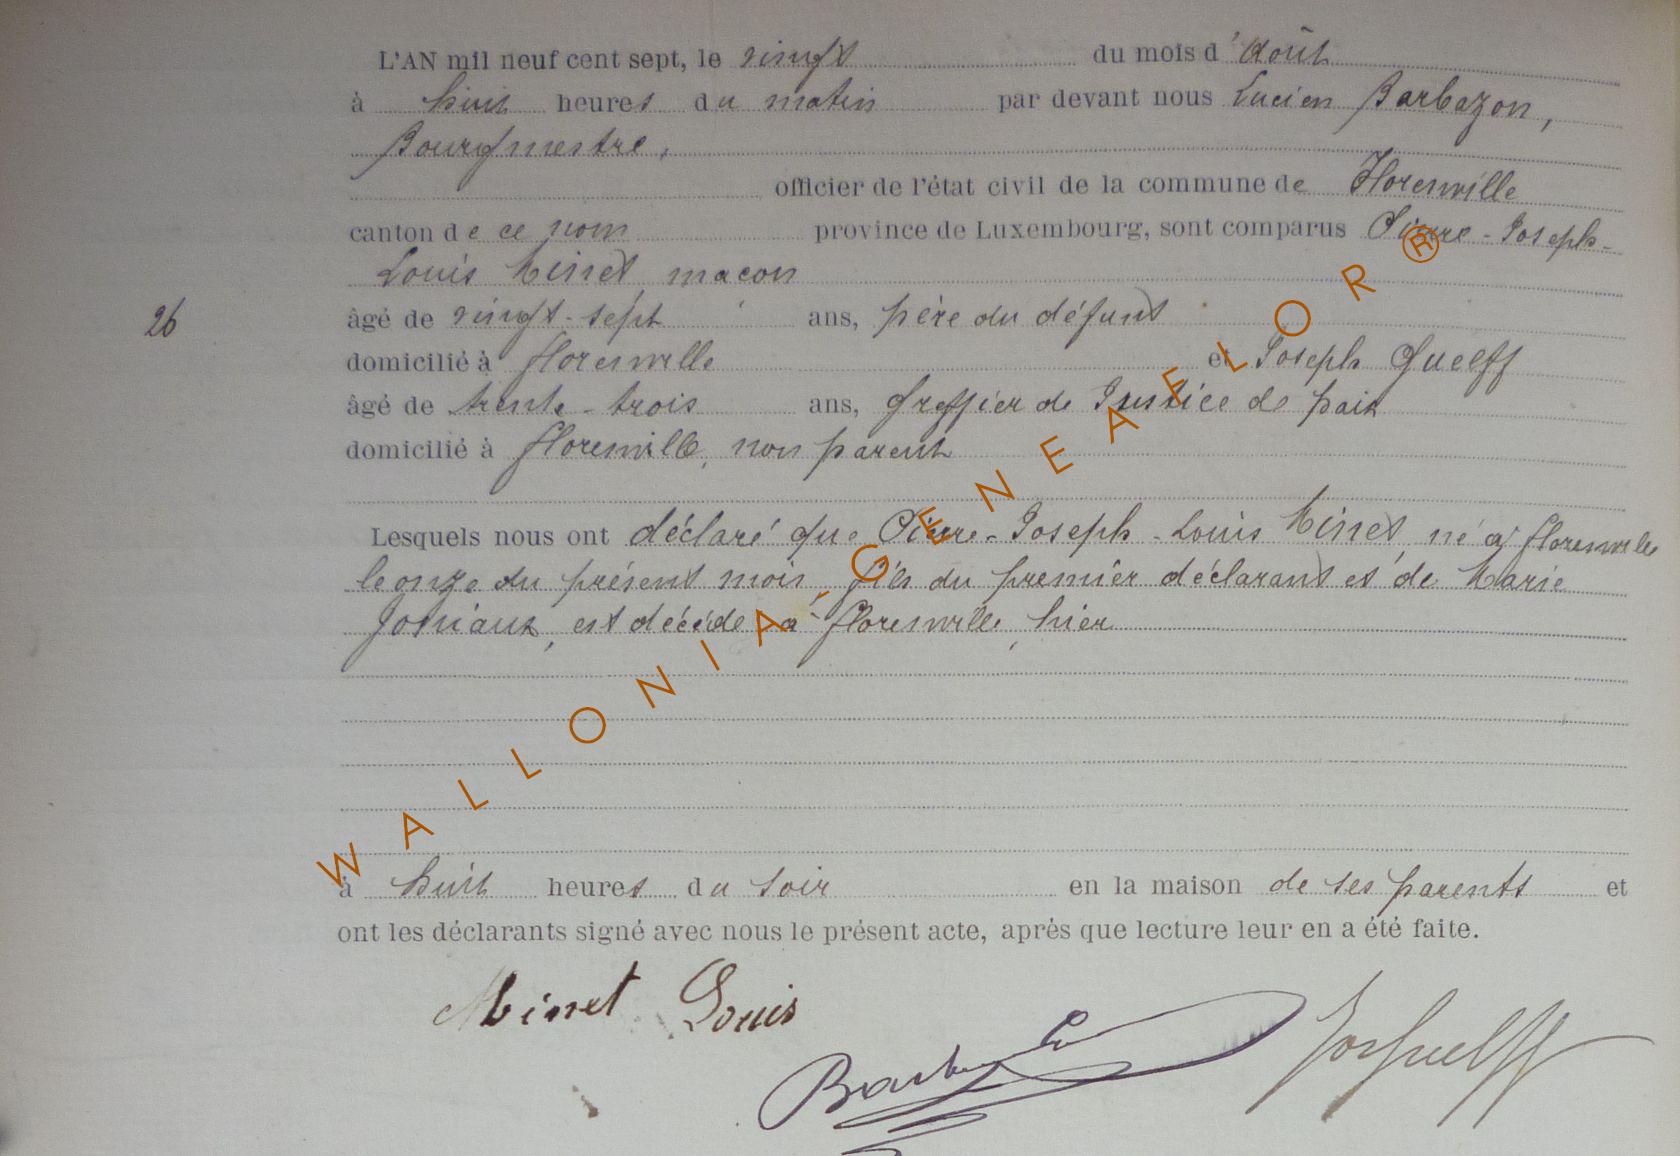 L'AN mil neuf cent sept, le vingt du mois d'Août
à huit heures du matin par devant nous Lucien Barbazon,
Bourgmestre,
officier de l'état civil de la commune de Florenville
canton de ce nom province de Luxembourg, sont comparus Pierre-Joseph-
Louis Minet, maçon
26 âgé de vingt-sept ans, père du défunt
domicilié à Florenville et Joseph Guelff
âgé de trente-trois ans, Greffier de Justice de paix
domicilié à Florenville, non parent
Lesquels nous ont déclaré que Pierre-Joseph-Louis Minet, né à Florenville
le onze du présent mois, fils du premier déclarant et de Marie
est décédé à Florenville, hier
à huit heures du soir en la maison de ses parents et
ont les déclarants signé avec nous le présent acte, après que lecture leur en a été faite.
Minet Louis
Jos Guelff
WALLONIA-GENEAFLOR®